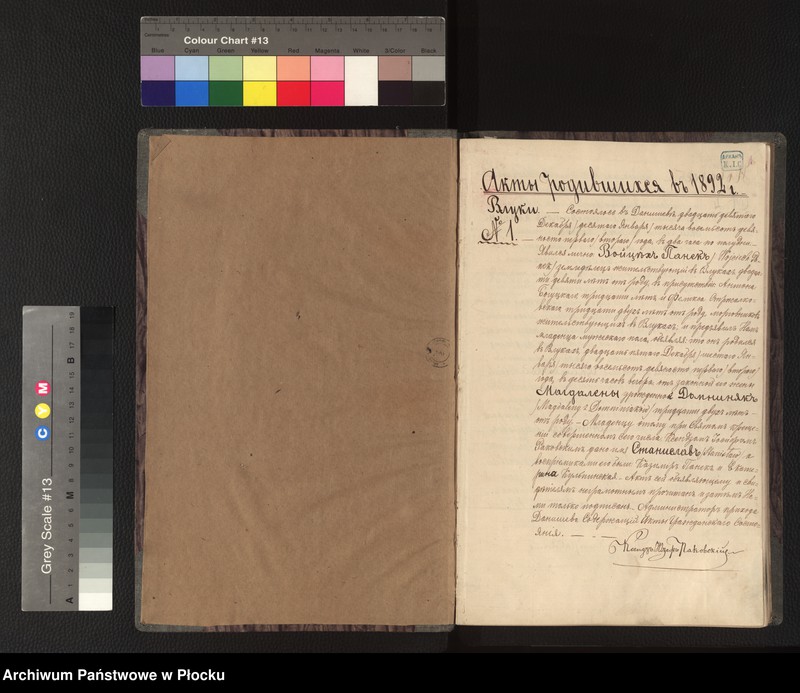 Colour Chart #13
Blue Cyan Green Yellow Red Magenta White 3/Color Black
Grey Scale #13
C Y M
A M B
Акты родившихся въ 1892 г.
Влуки.
№ 1.
Состоялось въ двадцать девятаго
Декабря /десятаго Января/ тысяча восемьсотъ девя-
носто перваго /втораго/ года, въ два часа по полудни.
Явился лично Войцѣхъ Панекъ
земледѣлецъ жительствующій въ Влукахъ двадца-
ти девяти лѣтъ отъ роду, въ присутствіи Антона
тридцати лѣтъ и Феликса
тридцати двухъ лѣтъ отъ роду,
жительствующихъ въ Влукахъ, и предъявилъ Намъ
младенца мужескаго пола, объявляя что онъ родился
въ Влукахъ двадцать пятаго Декабря /шестаго Ян-
варя/ тысяча восемьсотъ девяносто перваго /втораго/
года, въ десять часовъ вечера, отъ законной его жены
Магдалены урожденной Домнинякъ
тридцати двухъ лѣтъ
отъ роду. Младенцу этому при Святомъ креще-
ніи совершенномъ сего числа
дано имя Станиславъ, а
воспріемниками его были Казимиръ Панекъ и Екате-
рина Актъ сей объявляющему и сви-
дѣтелямъ неграмотнымъ прочитанъ и затѣмъ На-
ми только подписанъ. Администраторъ прихода
Содержащій Акты Гражданскаго Состо-
янія.
Archiwum Państwowe w Płocku